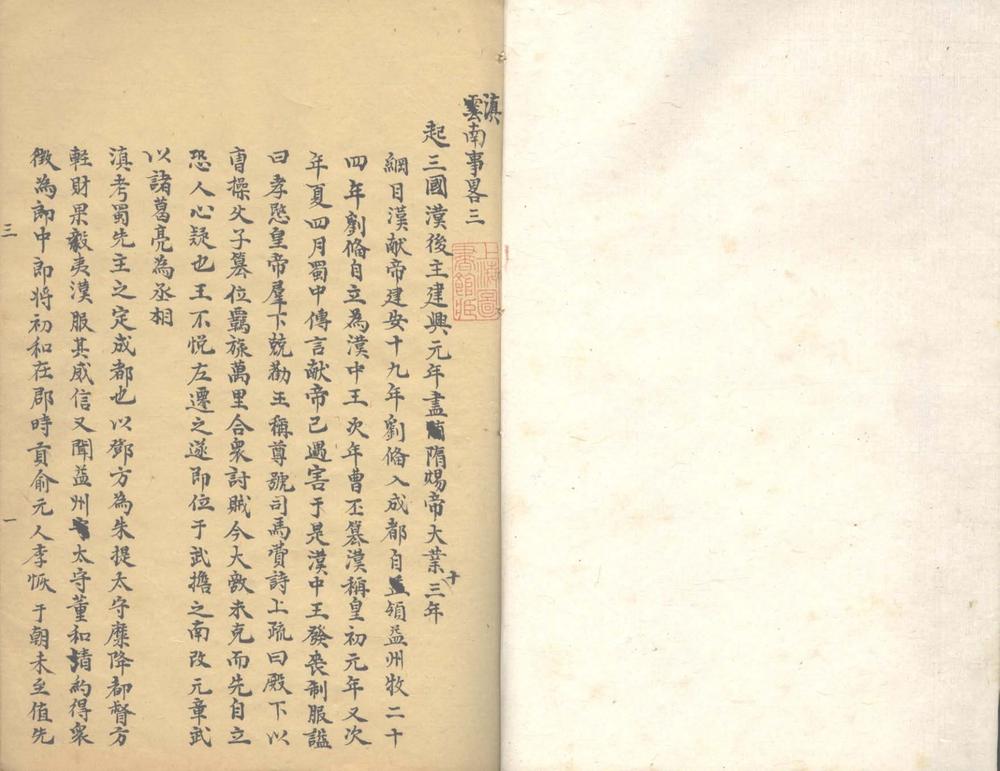 滇雲南事畧三
起三國漢後主建興元年盡隋煬帝大業十三年
綱目漢献帝建安十九年劉俻入成都自領益州牧二十
四年劉俻自立為漢中王次年曹丕篡漢稱皇初元年又次
年夏四月蜀中傳言献帝已遇害于是漢中王發丧制服謚
曰孝愍皇帝羣下競勸王稱尊號司馬費詩上疏曰殿下以
曹操父子篡位羈旅萬里合衆討賊今大敵未克而先自立
恐人心疑也王不悦左遷之遂即位于武擔之南改元章武
以諸葛亮為丞相
滇考蜀先主之定成都也以鄧方為朱提太守庲降都督方
輕財果毅夷漢服其威信又聞益州太守董和清約得衆
徵為郎中郎将初和在郡時貢俞元人李恢于朝未至值先
三
一
上海圖書館藏